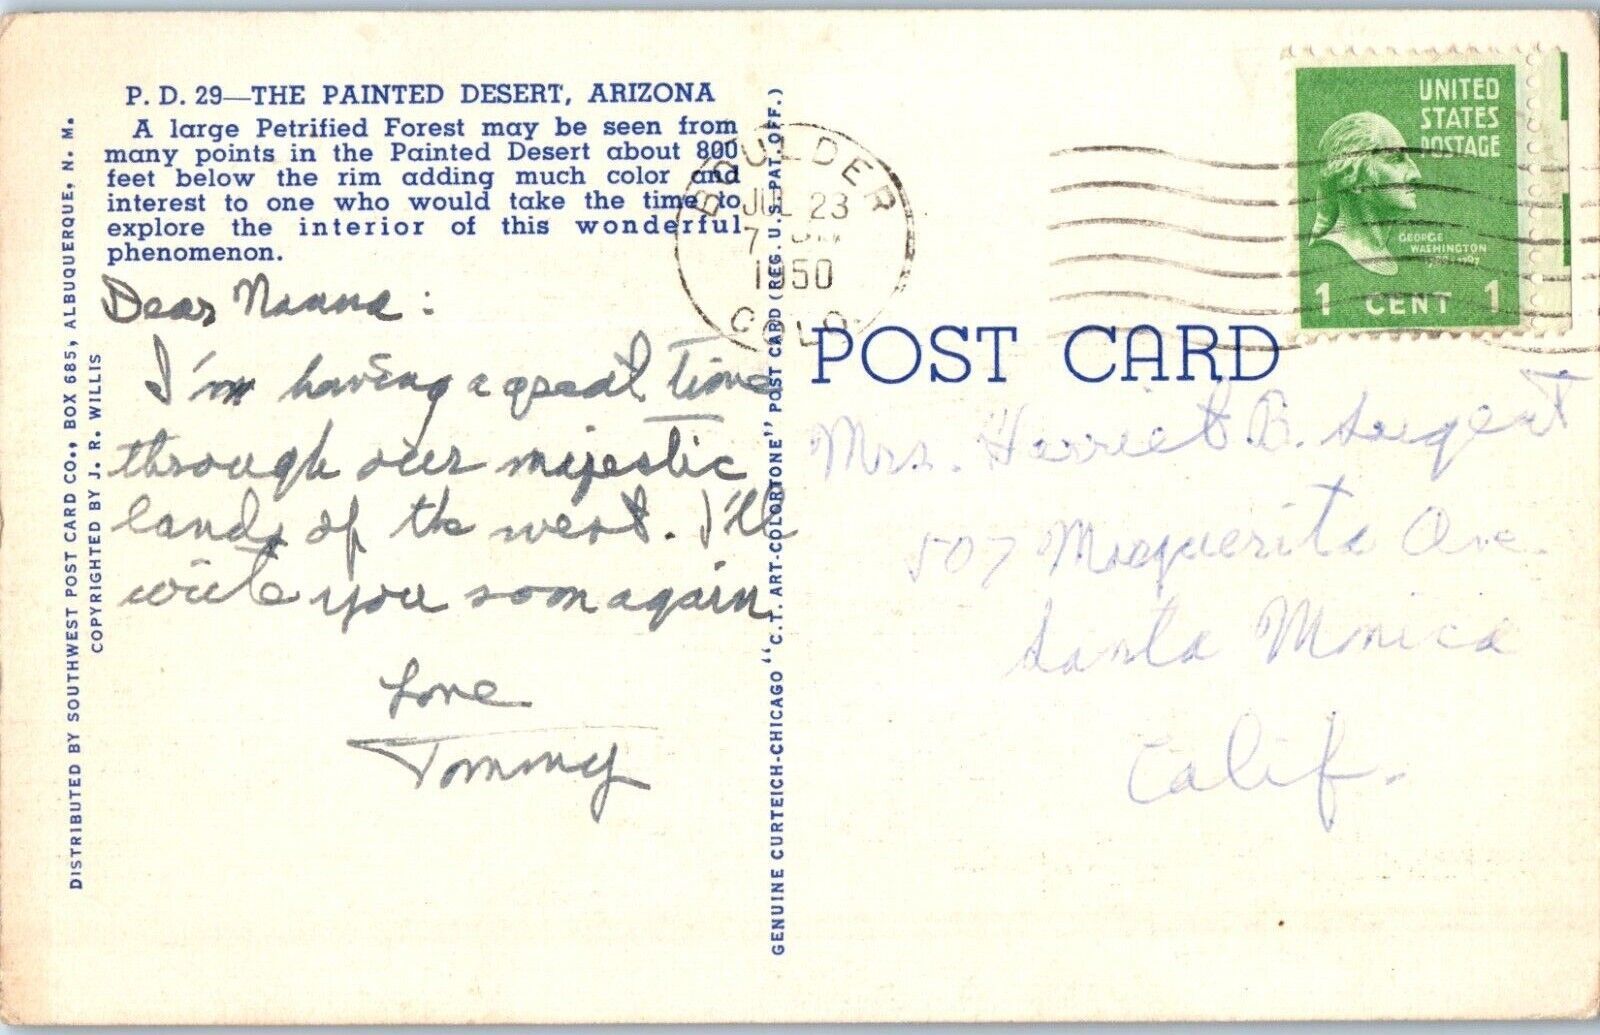 P. D. 29—THE PAINTED DESERT, ARIZONA
A large Petrified Forest may be seen from
many points in the Painted Desert about 800
feet below the rim adding much color and
interest to one who would take the time to
explore the interior of this wonderful
phenomenon.
Dear Nanna:
I'm having a great time
through our majestic
lands of the west. I'll
write you soon again
Love
Tommy
DISTRIBUTED BY SOUTHWEST POST CARD CO., BOX 685, ALBUQUERQUE, N. M.
COPYRIGHTED BY J. R. WILLIS
GENUINE CURTEICH-CHICAGO "C.T. ART-COLORTONE" POST CARD (REG. U.S. PAT. OFF.)
BOULDER
JUL 23
7
1950
COLO
UNITED
STATES
POSTAGE
GEORGE
WASHINGTON
1 CENT 1
POST CARD
Mrs. Harriet B.
507 Marguerita Ave.
Santa Monica
Calif.